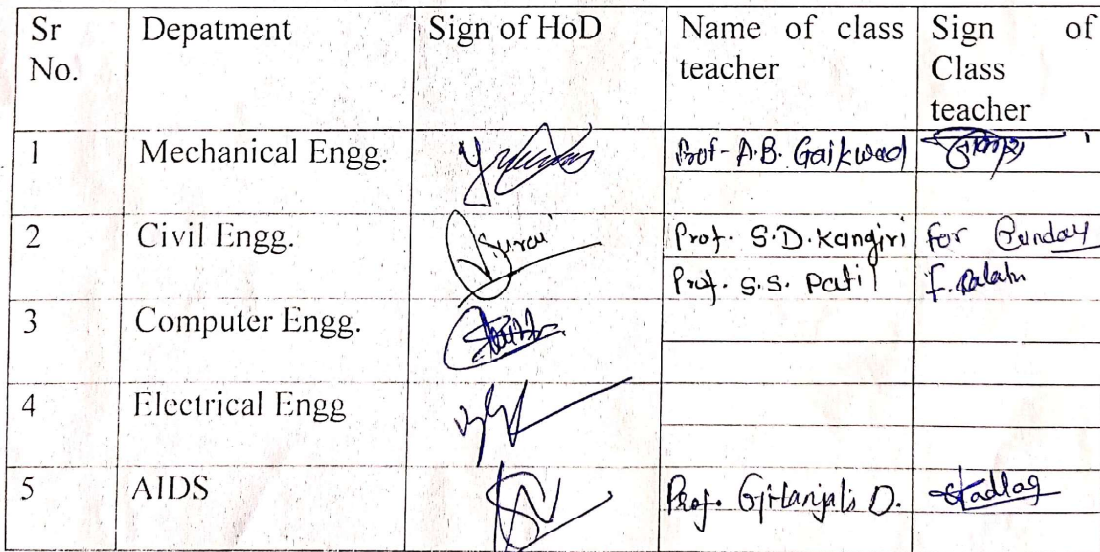 Sr No. Depatment Sign of HoD Name of class teacher Sign of Class teacher
1 Mechanical Engg. Prof- A.B. Gaikwad
2 Civil Engg. Suraj Prof. S.D. Kangiri for
Prof. S.S. Patil
3 Computer Engg.
4 Electrical Engg
5 AIDS Prof. Gitanjali D.